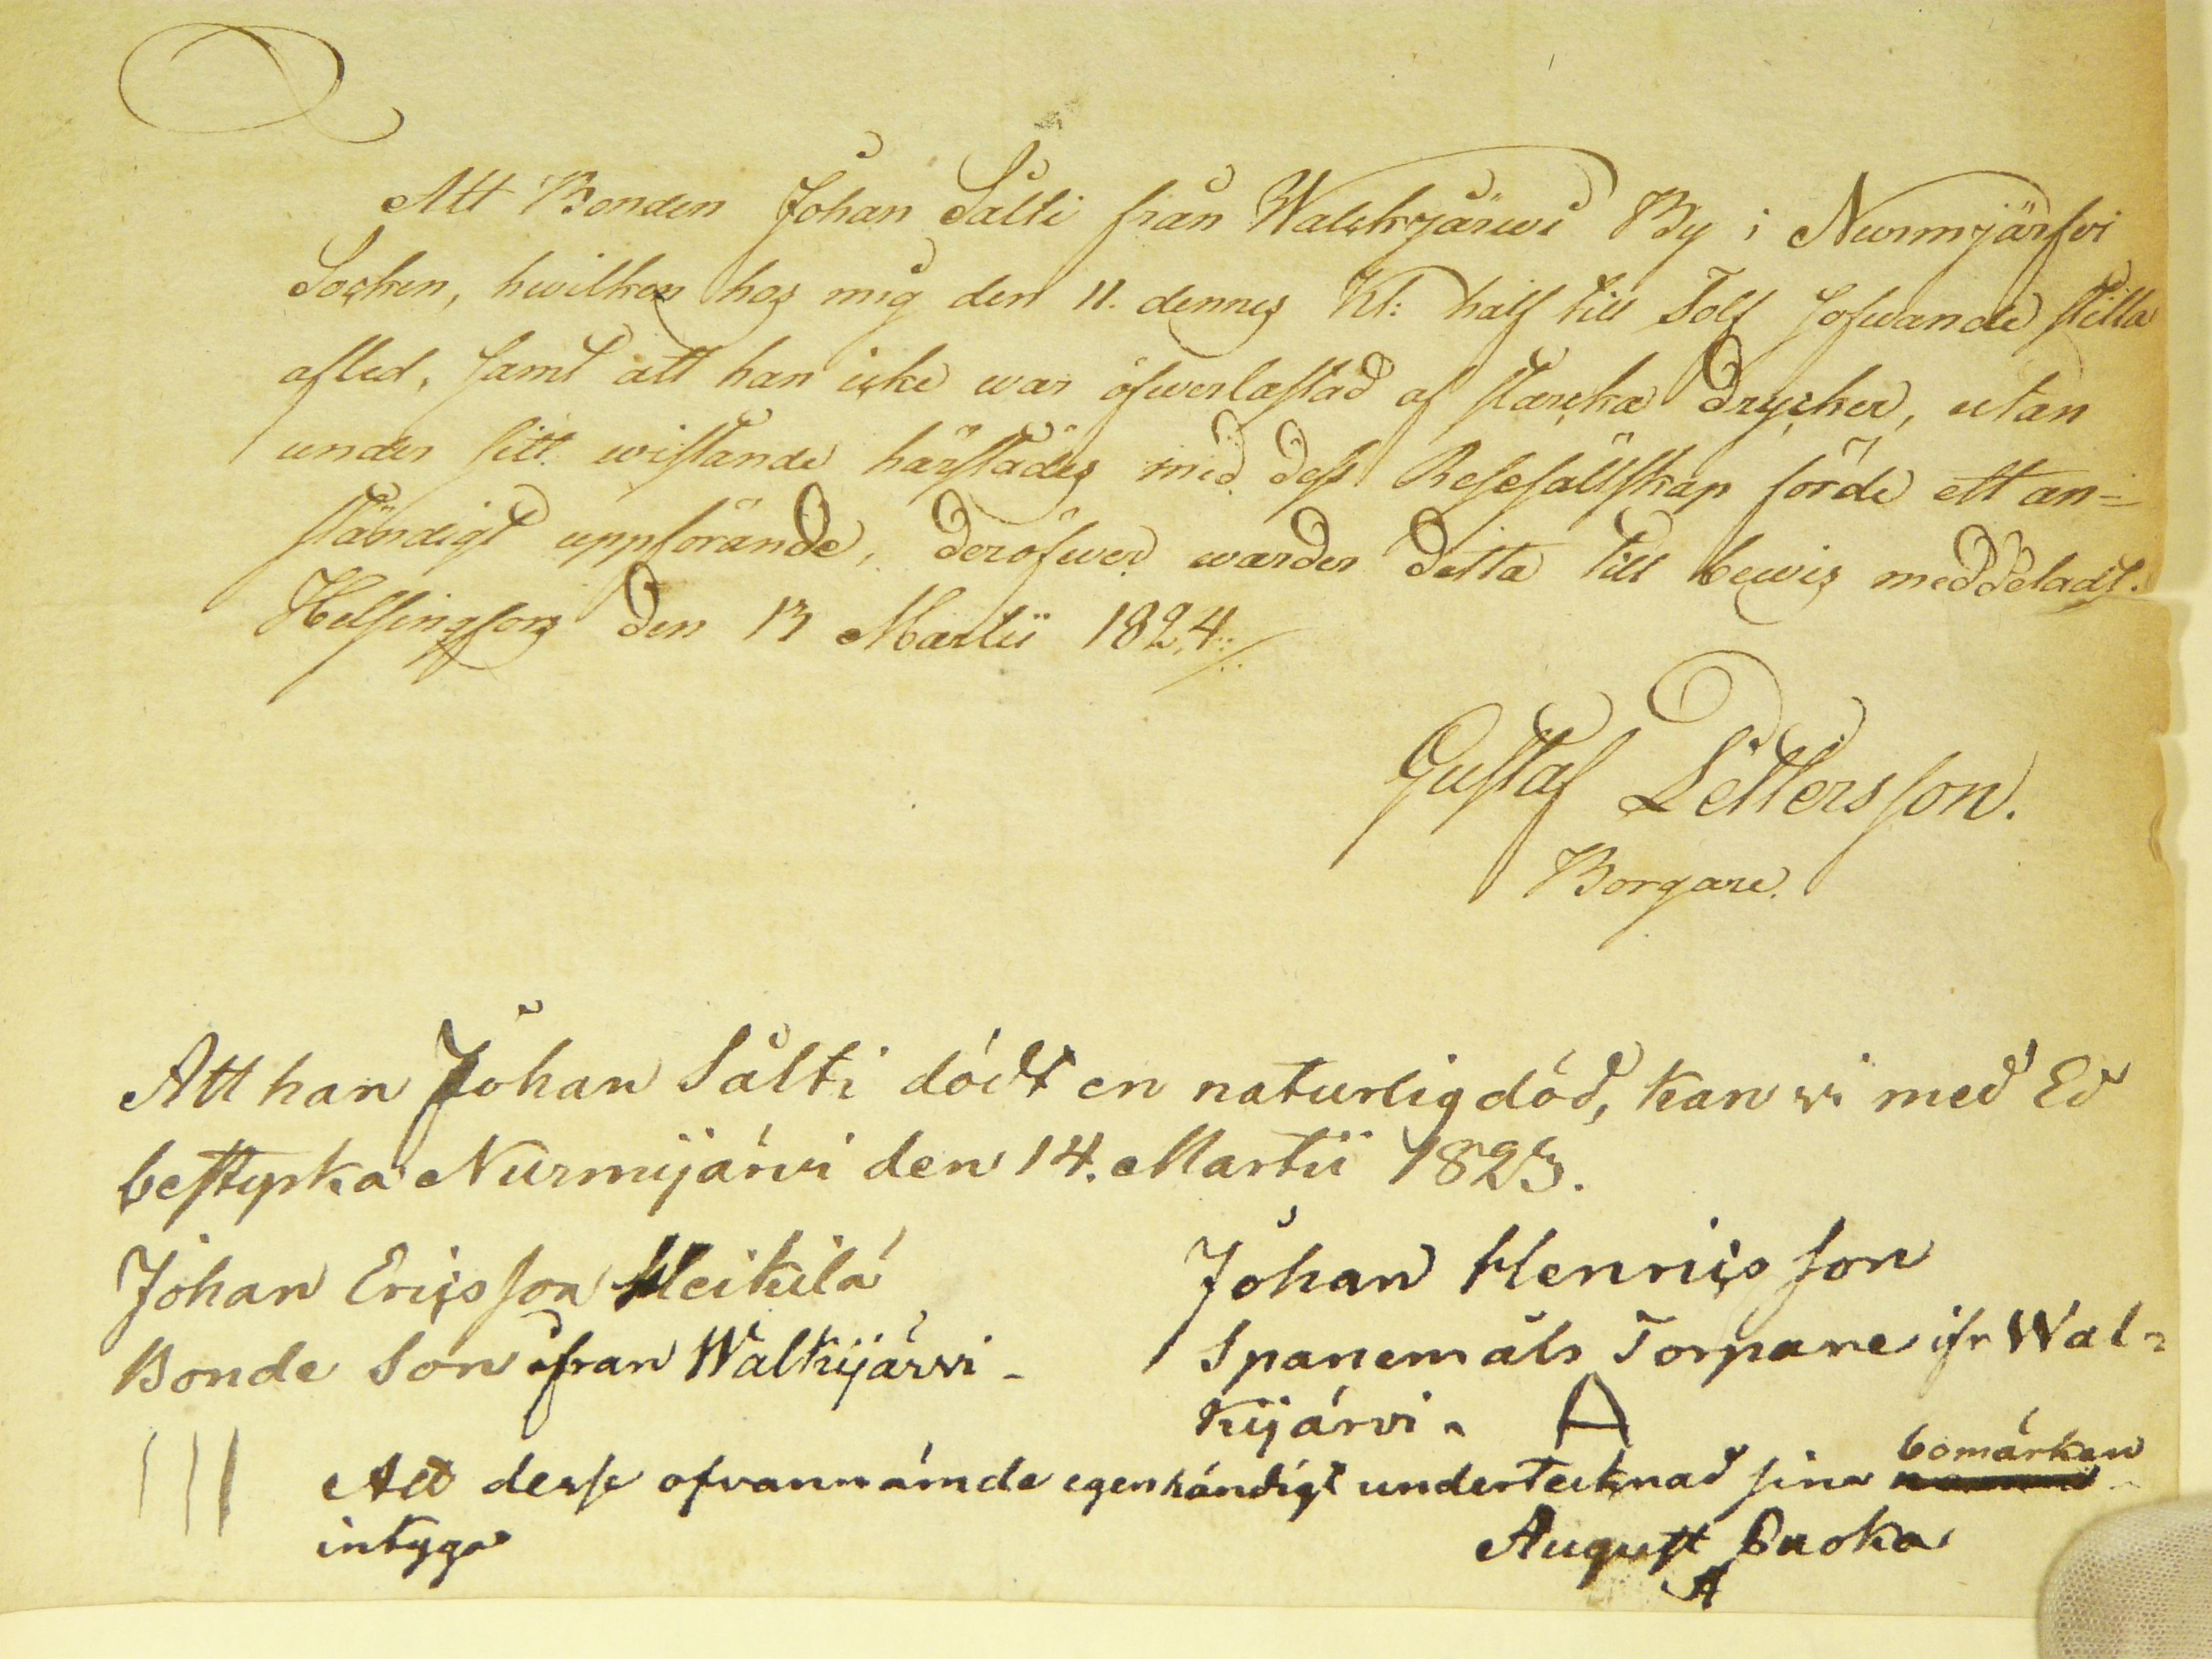 Att Bonden Johan Sålti från Walckjärwi By i Nurmjärfvi
Socken, hwilken hos mig den 11. dennes Kl: half till Tolf sofwande stilla
afled, samt att han icke war öfwerlastad af starcka Drycker, utan
under sitt wistande härstädes med dess Resesällskap förde ett an=
ständigt uppförande, Deröfwer warder Detta till bewis meddeladt.
Helsingfors den 13 Martii 1824./.
Gustaf Pettersson.
Borgare.
Att han Johan Sålti dödt en naturlig död, kan vi med Ed
bestyrka Nurmijärvi den 14. Martii 1825.
Johan Ericsson Heikilä
Bonde Son ifran Walkijärvi -
Johan Henrics son
Torpare ifr Wal=
kijärvi. A
III
Att desse ofvannämde egenhändigt undertecknad sina bomärken
intygar
August